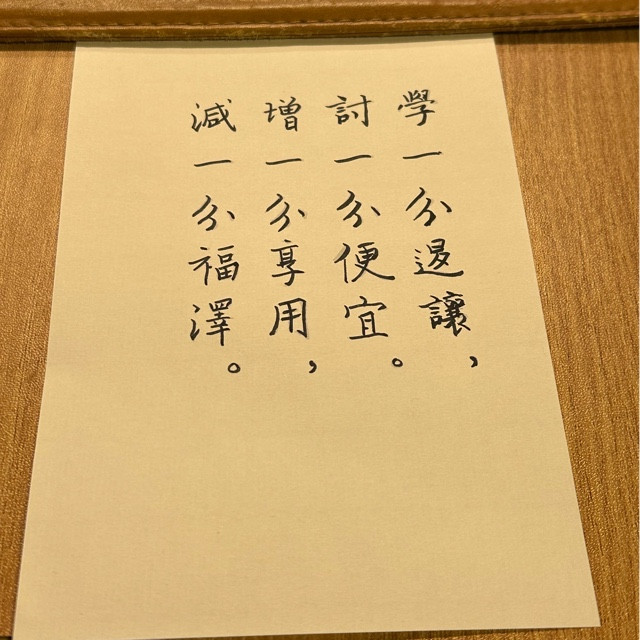 學一分退讓，
討一分便宜。
增一分享用，
減一分福澤。